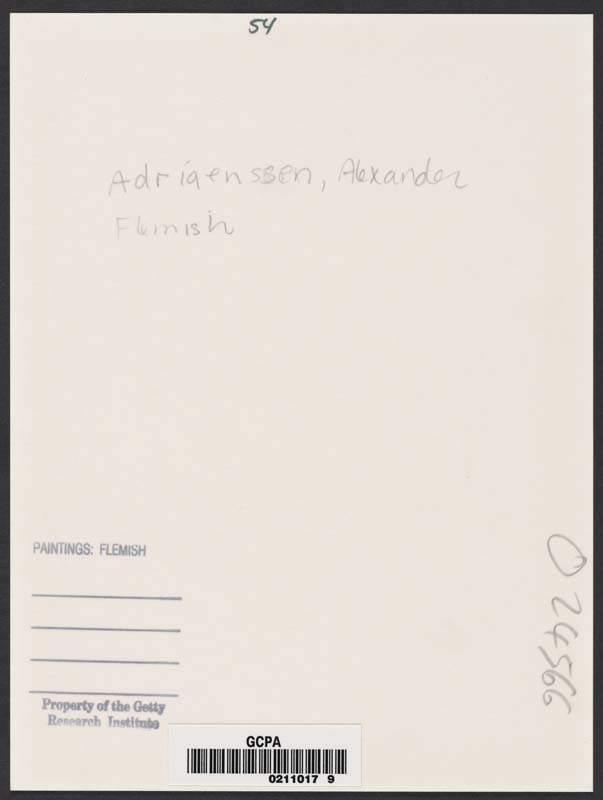 54
Adriaenssen, Alexander
Flemish
PAINTINGS: FLEMISH
Property of the Getty
Research Institute
GCPA
0211017 9
O 24566